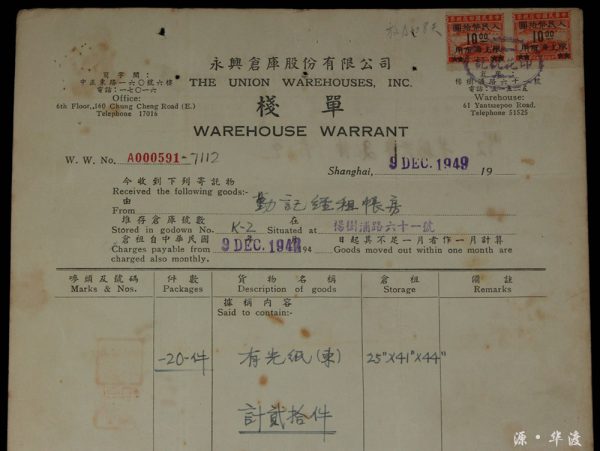 永興倉庫股份有限公司
THE UNION WAREHOUSES, INC.
寫字間：
中正東路一六〇號六樓
電話：一七〇一六
Office:
6th Floor, 160 Chung Cheng Road (E.)
Telephone 17016
楊樹浦路六十一號
電話：五一五二五
Warehouse:
61 Yantsepoo Road.
Telephone 51525
10.00
10.00
棧單
WAREHOUSE WARRANT
W. W. No. A000591-7112
Shanghai, 9 DEC. 1949 19
今收到下列寄託物
Received the following goods:-
由
From 勤記經租帳房
堆存倉庫號數 在
Stored in godown No. K-2 Situated at 楊樹浦路六十一號
倉租自中華民國 日起其不足一月者作一月計算
Charges payable from 9 DEC. 194 194 Goods moved out within one month are
charged also monthly.
嘜頭及號碼 件數 貨物名稱 倉租 備註
Marks & Nos. Packages Description of goods Storage Remarks
據稱內容
Said to contain:-
-20-件 有光紙(東) 25"X41"X44"
計貳拾件
源·华渡